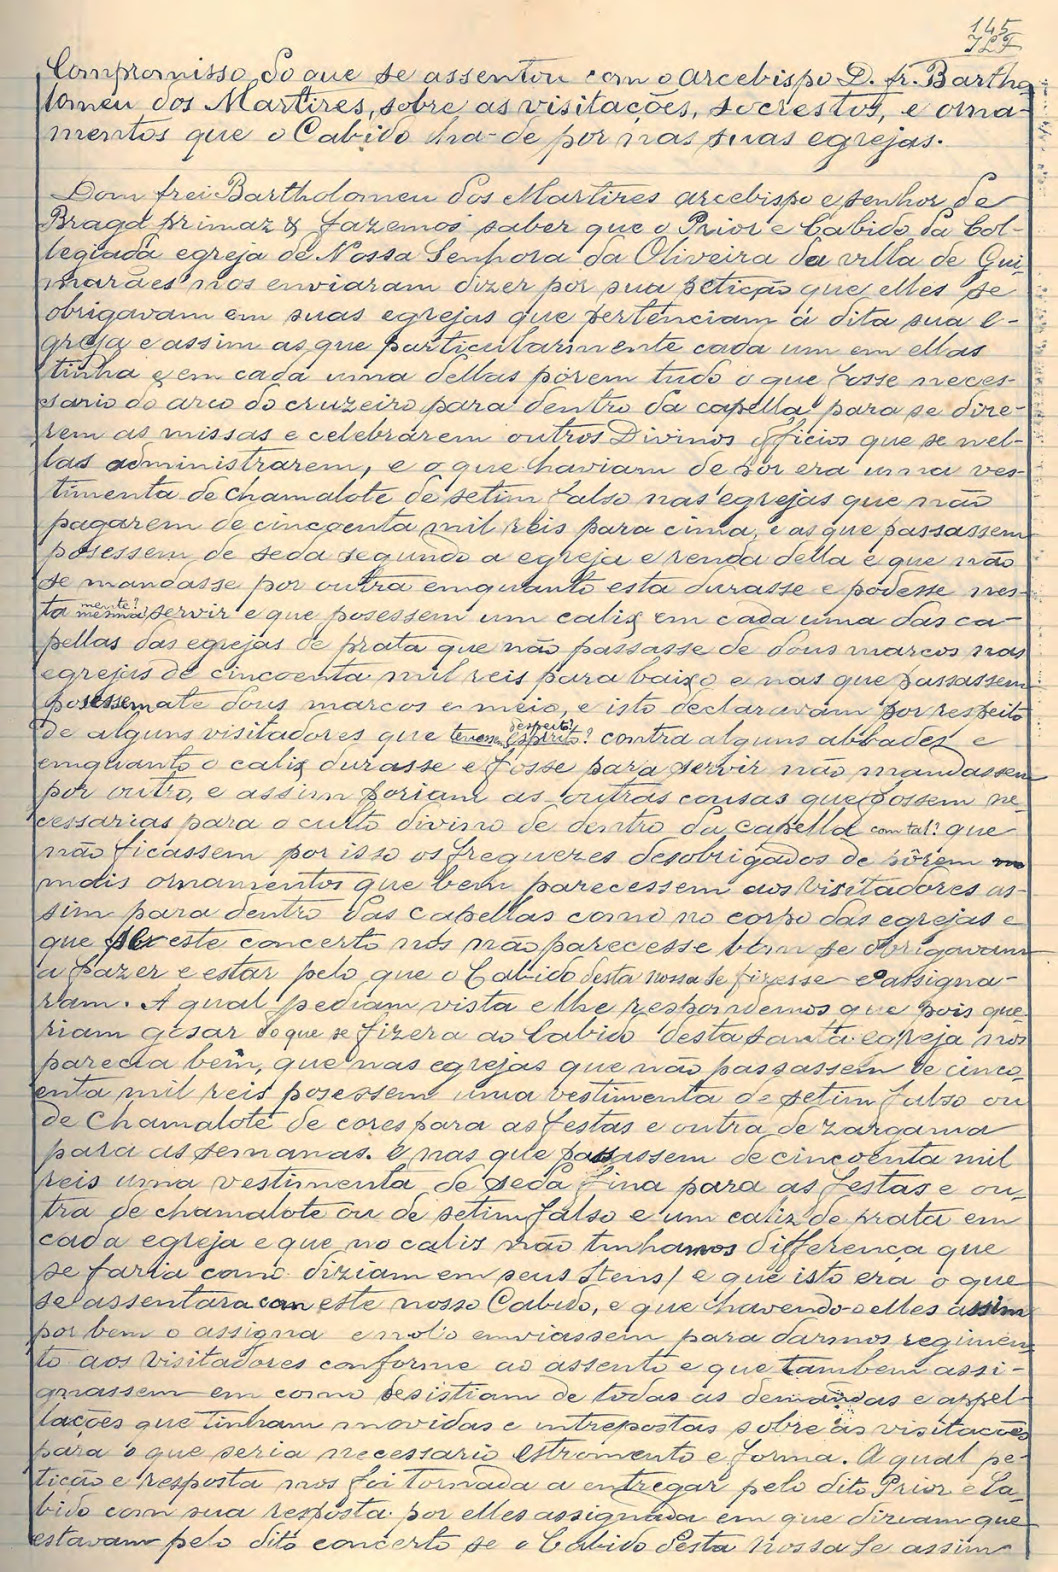 145
Compromisso do que se assentou com o arcebispo D. fr. Bartho-
lomeu dos Martires, sobre as visitações, socrestos, e orna-
mentos que o Cabido ha-de por nas suas egrejas.
Dom frei Bartholomeu dos Martires arcebispo e senhor de
Braga primaz & fazemos saber que o Prior e Cabido da Col-
legiada egreja de Nossa Senhora da Oliveira da villa de Gui-
marães nos enviaram dizer por sua petição que elles se
obrigavam em suas egrejas que pertenciam á dita sua e-
greja e assim as que particularmente cada um em ellas
tinha e em cada uma dellas pôrem tudo o que fosse neces-
sario do arco do cruzeiro para dentro da capella para se dize-
rem as missas e celebrarem outros Divinos officios que se nel-
las administrarem, e o que haviam de pôr era uma ves-
timenta de chamalote de setim falso nas egrejas que não
pagarem de cincoenta mil reis para cima, e as que passassem
posessem de seda segundo a egreja e renda della e que não
se mandasse por outra emquanto esta durasse e podesse nes-
ta mesma mente? servir e que posessem um calix em cada uma das ca-
pellas das egrejas de prata que não passasse de dous marcos nas
egrejas de cincoenta mil reis para baixo e nas que passassem
posessem ate dous marcos e meio, e isto declaravam por respeito
de alguns visitadores que tenem despeito? espirito? contra alguns abbades e
emquanto o calix durasse e fosse para servir não mandassem
por outro, e assim poriam as outras cousas que fossem ne-
cessarias para o culto divino de dentro da capella com tal? que
não ficassem por isso os freguezes desobrigados de pôrem
mais ornamentos que bem parecessem aos visitadores as-
sim para dentro das capellas como no corpo das egrejas e
que se este concerto nos não parecesse bem se obrigavam
a fazer e estar pelo que o Cabido desta nossa se fizesse e o assigna-
riam. A qual pediam vista e lhe respondemos que pois que-
riam gosar do que se fizera ao Cabido desta santa egreja nos
parecia bem, que nas egrejas que não passassem de cinco-
enta mil reis posessem uma vestimenta de setim falso ou
de Chamalote de cores para as festas e outra de zargama
para as semanas. e nas que passassem de cincoenta mil
reis uma vestimenta de seda fina para as festas e ou-
tra de chamalote ou de setim falso e um calix de prata em
cada egreja e que no calix não tinhamos differença que
se faria como diziam em seus itens / e que isto era o que
se assentara com este nosso Cabido, e que havendo-o elles assim
por bem o assigna e nolo enviassem para darmos regimen-
to aos visitadores conforme ao assento e que tambem assi-
gnassem em como desistiam de todas as demandas e appel-
lações que tinham movidas e intrepostas sobre as visitações
para o que seria necessario estromento e forma. A qual pe-
tição e resposta nos foi tornada a entregar pelo dito Prior e Ca-
bido com sua resposta por elles assignada em que diziam que
estavam pelo dito concerto se o Cabido desta nossa se assim